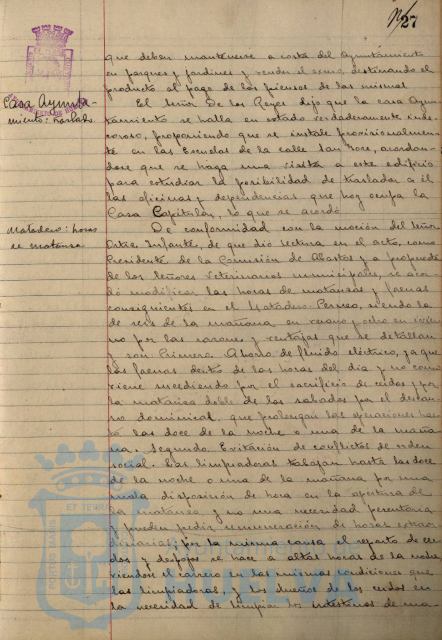 Nº/27
que deben mantenerse a costa del Ayuntamiento
en parques y jardines y vender el sexmo, destinando el
producto al pago de los piensos de las mismas
Casa Ayunta-
miento: traslado.
El Señor De los Reyes dijo que la casa Ayun-
tamiento se halla en estado verdaderamente inde-
coroso, proponiendo que se instale provisionalmen-
te en las Escuelas de la calle San José, acordan-
dose que se haga una visita a este edificio
para estudiar la posibilidad de trasladar a él
las oficinas y dependencias que hoy ocupa la
Casa Capitular, lo que se acordó
Matadero: horas
de matanza
De conformidad con la moción del Señor
Ortiz Infante, de que dió lectura en el acto, como
Presidente de la Comisión de Abastos y a propuesta
de los Señores Veterinarios municipales, se acor-
dó modificar las horas de matanzas y faenas
consiguientes en el Matadero, siendo la
de seis de la mañana en verano y ocho en invier-
no por las razones y ventajas que se detallan
y son Primera. Ahorro de fluido eléctrico, ya que
las faenas dentro de las horas del día y no como
viene sucediendo por el sacrificio de cerdos y por
la matanza doble de los sabados por el descan-
so dominical, que prolongan las operaciones has-
ta las doce de la noche o una de la maña-
na. Segundo. Evitación de conflictos de orden
social. Las limpiadoras trabajan hasta las doce
de la noche o una de la mañana por una
mala disposición de hora en la apertura de
la matanza y no una necesidad perentoria
y pueden pedir remuneración de horas extraor-
dinarias; por la misma causa el reparto de cer-
dos y despojos se hace a altas horas de la noche
viendose el carrero en las mismas condiciones que
las limpiadoras, y los dueños de los cerdos en
la necesidad de limpiar los intestinos de ma-